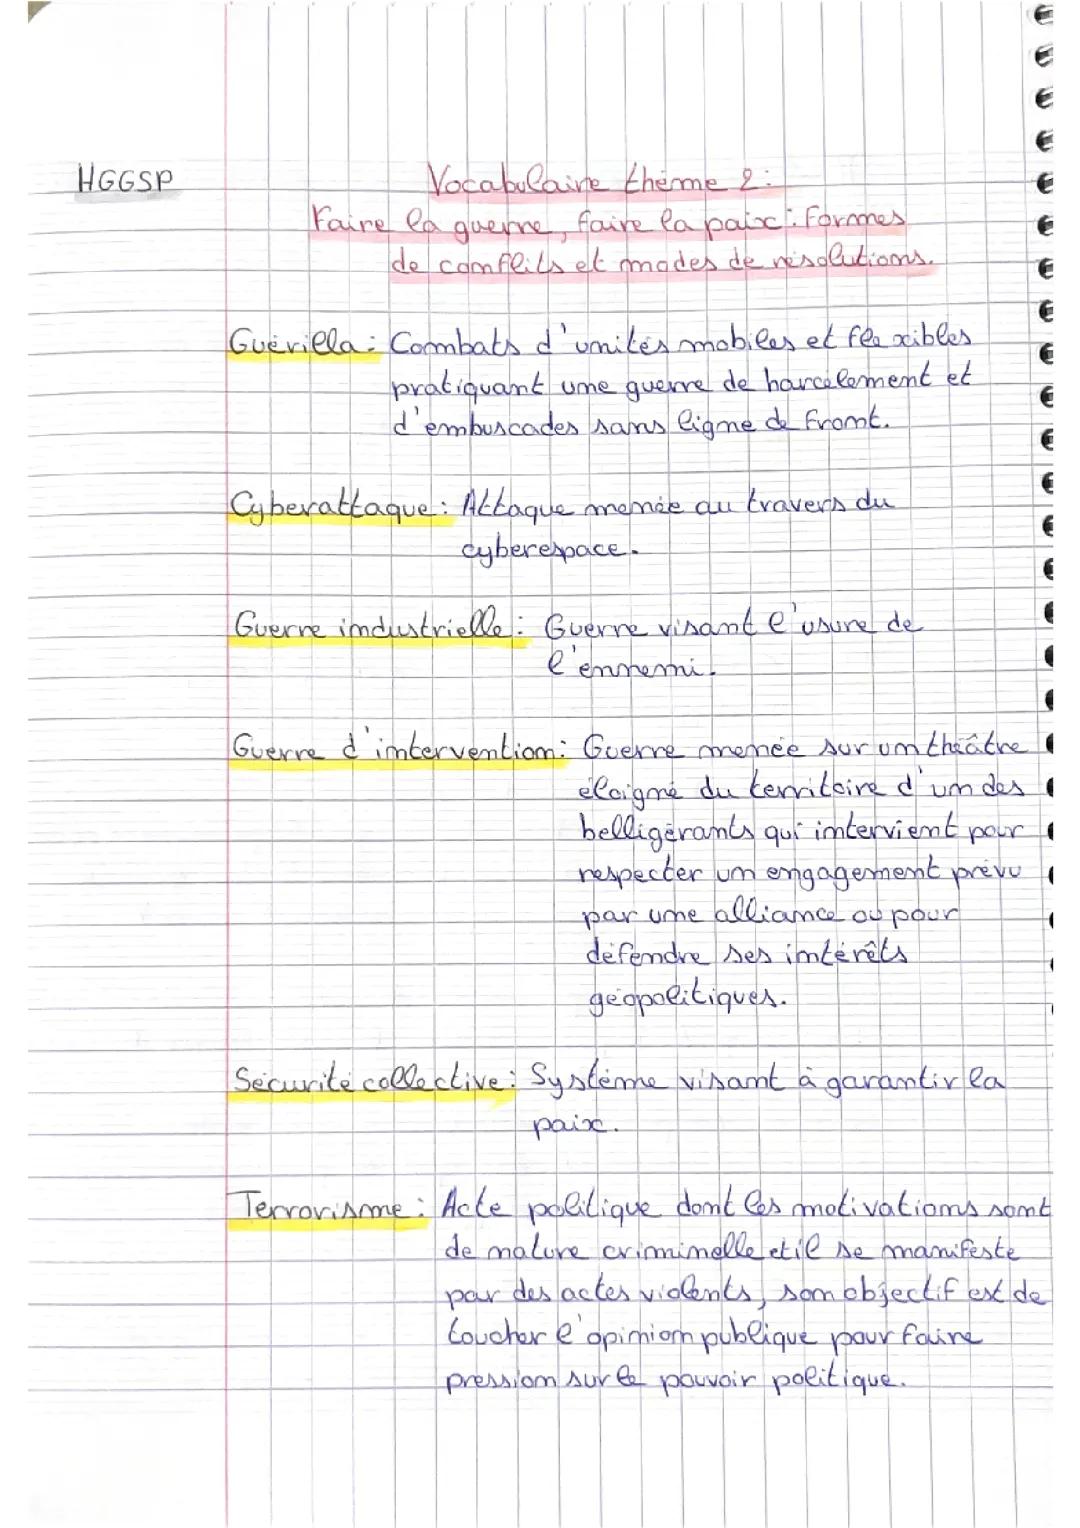 HGGSP
Vocabulaire thème 2 :
Faire la guerre, faire la paix : Formes
de conflits et modes de résolutions.
Guérilla : Combats d'unités mobiles et flexibles
pratiquant une guerre de harcelement et
d'embuscades sans ligne de front.
Cyberattaque : Attaque menée au travers du
cyberespace.
Guerre industrielle : Guerre visant l'usure de
l'ennemi.
Guerre d'intervention : Guerre menée sur un théâtre
éloigné du territoire d'un des
belligérants qui intervient pour
respecter un engagement prévu
par une alliance ou pour
défendre ses intérêts
géopolitiques.
Sécurité collective : Système visant à garantir la
paix.
Terrorisme : Acte politique dont les motivations sont
de nature criminelle et il se manifeste
par des actes violents, son objectif est de
toucher l'opinion publique pour faire
pression sur le pouvoir politique.